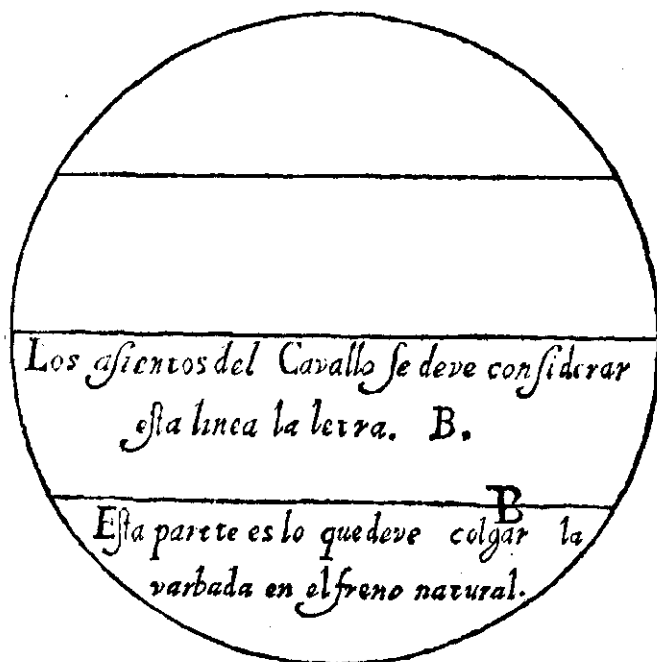 Los asientos del Cavallo se deve considerar
esta linea la letra. B.
B
Esta partte es lo que deve colgar la
varbada en el freno natural.